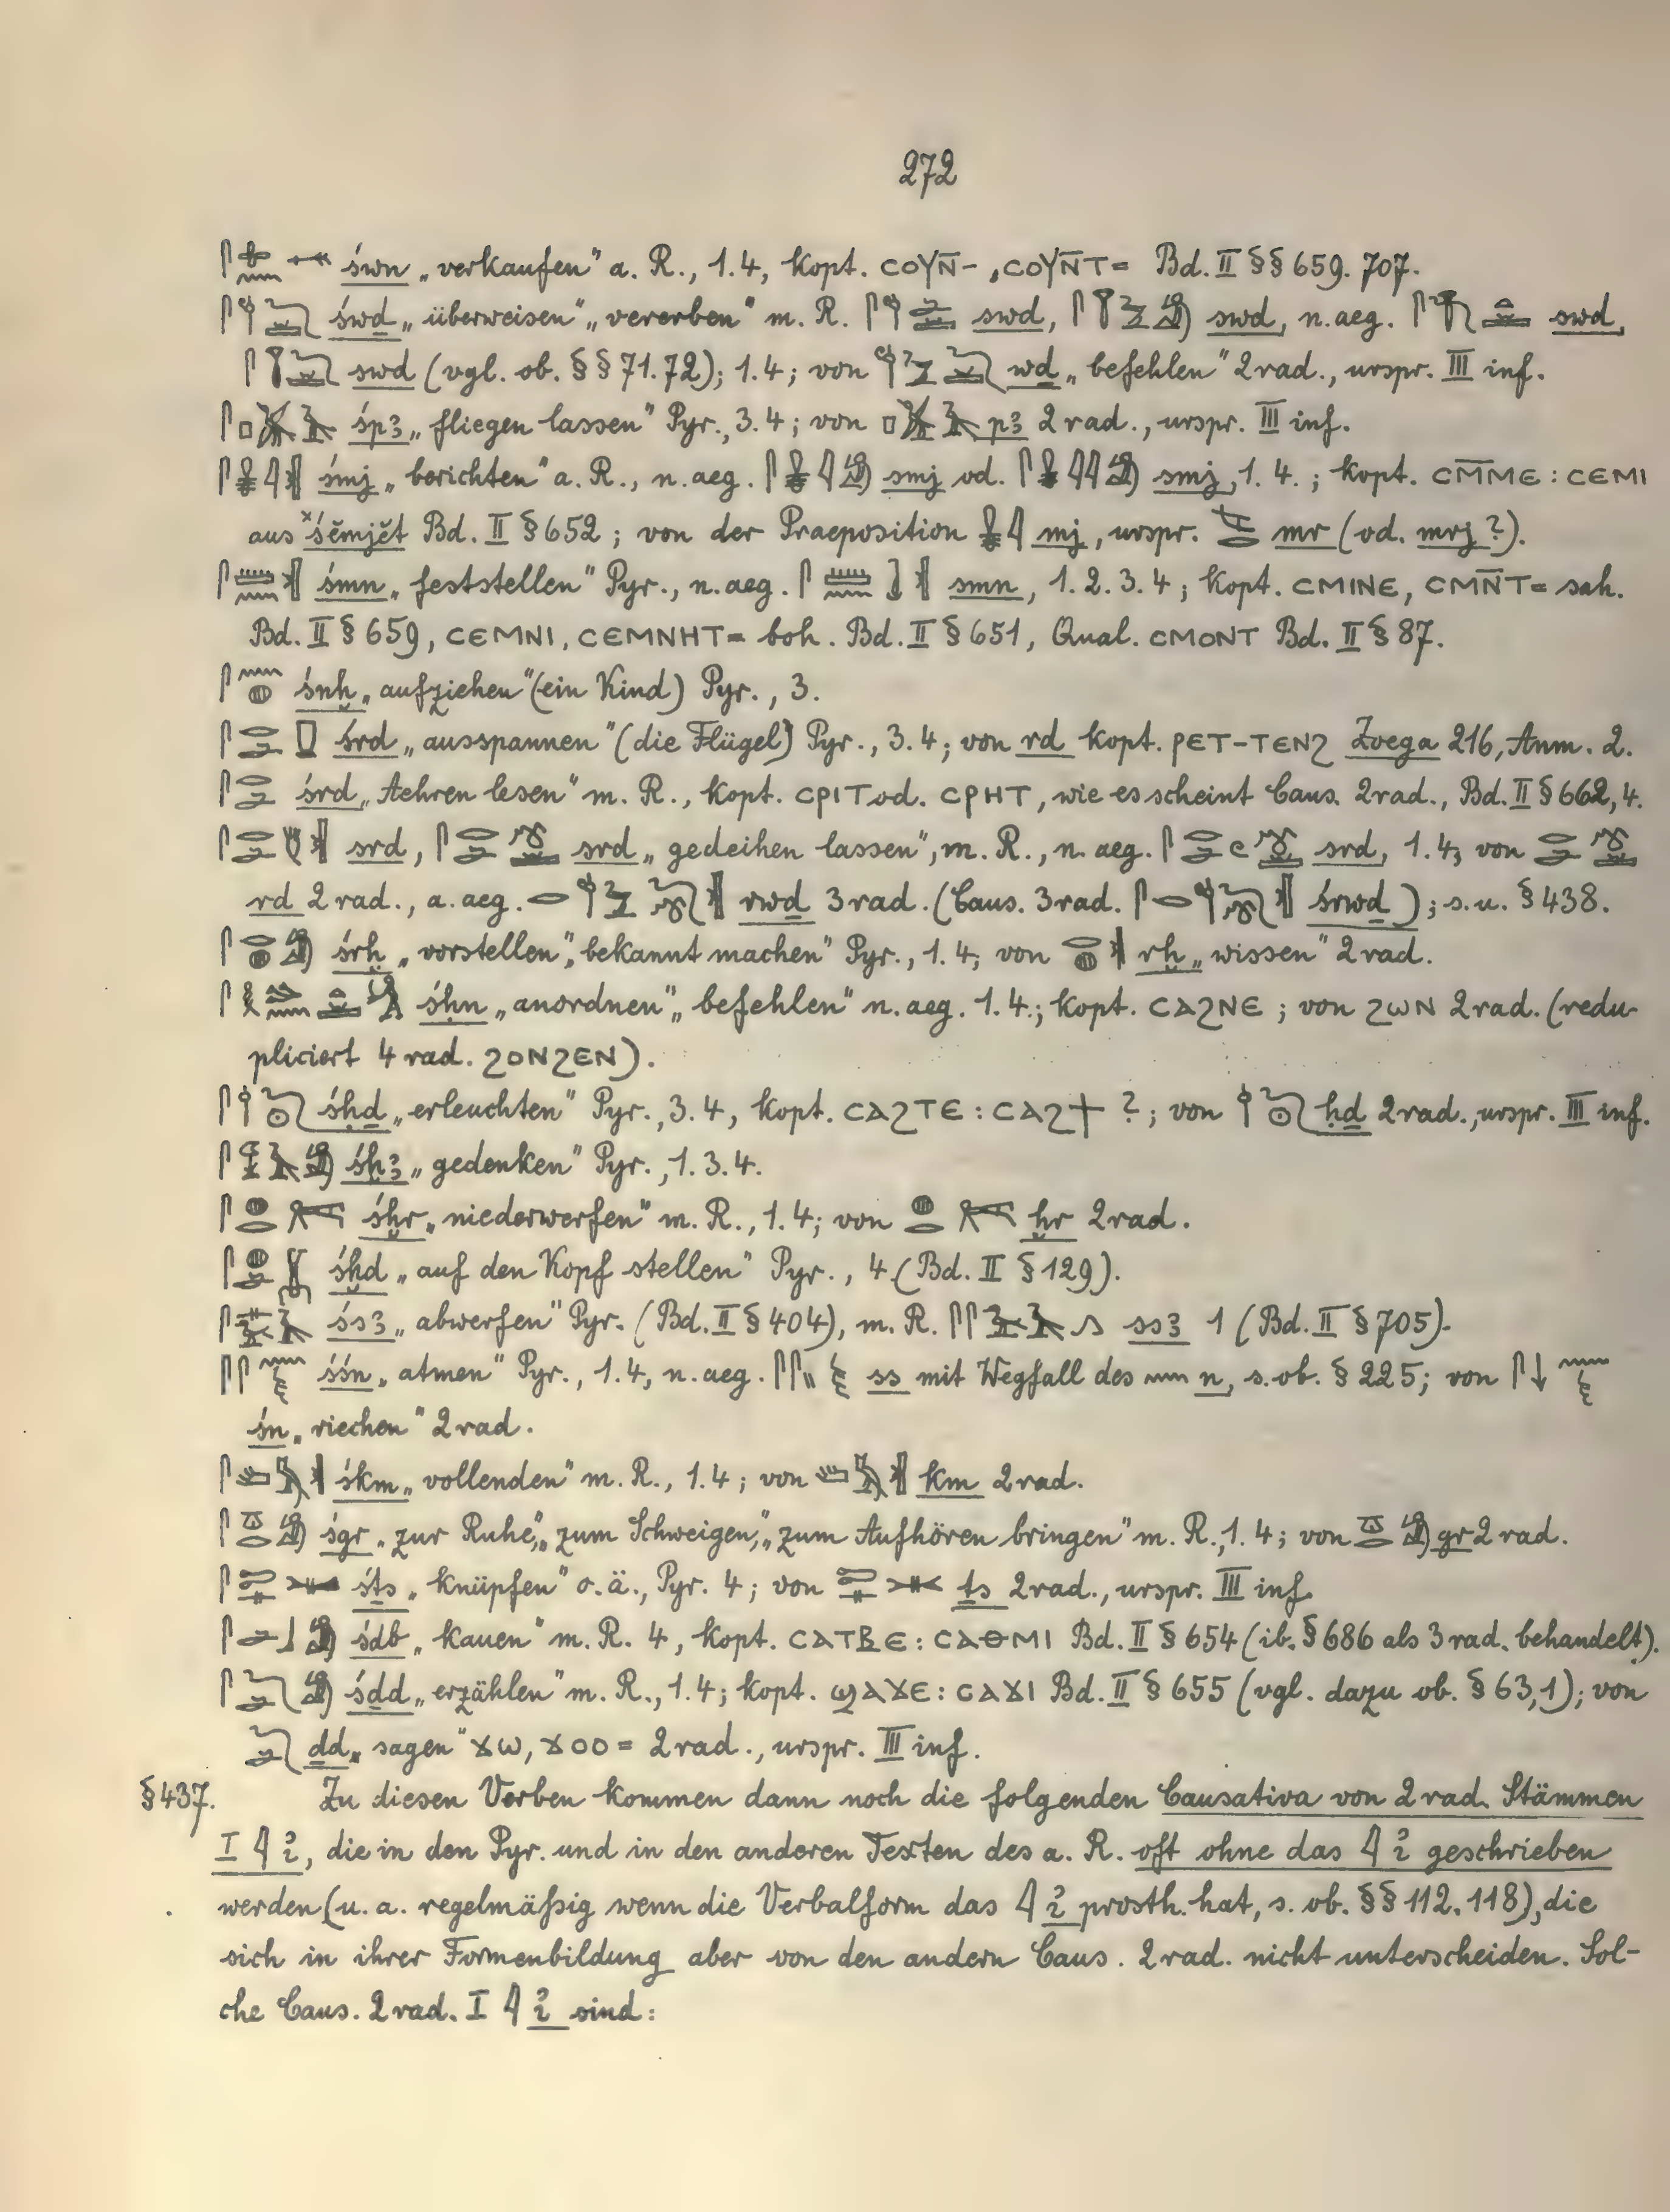 272
św̱n „verkaufen" a. R., 1.4, kopt. ⲥⲟⲩⲛ̄-, ⲥⲟⲩⲛ̄ⲧ= Bd. II §§ 659. 707.
śwḏ „überweisen" „vererben" m. R. swd, swd, n. aeg. swd,
swd (vgl. ob. §§ 71.72); 1.4; von wḏ „befehlen" 2rad., urspr. III inf.
śpꜣ „fliegen lassen" Pyr., 3.4; von pꜣ 2rad., urspr. III inf.
śmj „berichten" a. R., n. aeg. smj od. smj, 1.4.; kopt. ⲥⲙ̄ⲙⲉ : ⲥⲉⲙⲓ
aus ˣśĕmjĕt Bd. II § 652; von der Praeposition mj, urspr. mr (od. mrj?).
śmn „feststellen" Pyr., n. aeg. smn, 1.2.3.4; kopt. ⲥⲙⲓⲛⲉ, ⲥⲙⲛ̄ⲧ= sah.
Bd. II § 659, ⲥⲉⲙⲛⲓ, ⲥⲉⲙⲛⲏⲧ= boh. Bd. II § 651, Qual. ⲥⲙⲟⲛⲧ Bd. II § 87.
śnḫ „aufziehen" (ein Kind) Pyr., 3.
śrd „ausspannen" (die Flügel) Pyr., 3.4; von rd kopt. ⲣⲉⲧ-ⲧⲉⲛϩ Zoega 216, Anm. 2.
śrd „Aehren lesen" m. R., kopt. ⲥⲣⲓⲧ od. ⲥⲣⲏⲧ, wie es scheint Caus. 2rad., Bd. II § 662,4.
srd, srd „gedeihen lassen", m. R., n. aeg. srd, 1.4, von
rd 2rad., a. aeg. rwḏ 3rad. (Caus. 3rad. śrwḏ); s. u. § 438.
śrḫ „vorstellen", „bekannt machen" Pyr., 1.4; von rḫ „wissen" 2rad.
śḥn „anordnen" „befehlen" n. aeg. 1.4.; kopt. ⲥⲁϩⲛⲉ; von ϩⲱⲛ 2rad. (redu-
pliciert 4rad. ϩⲟⲛϩⲉⲛ).
śḥḏ „erleuchten" Pyr., 3.4, kopt. ⲥⲁϩⲧⲉ : ⲥⲁϩϯ ?; von ḥḏ 2rad., urspr. III inf.
śḫꜣ „gedenken" Pyr., 1.3.4.
śḫr „niederwerfen" m. R., 1.4; von ḫr 2rad.
śḫd „auf den Kopf stellen" Pyr., 4 (Bd. II § 129).
śsꜣ „abwerfen" Pyr. (Bd. II § 404), m. R. ssꜣ 1 (Bd. II § 705).
śśn „atmen" Pyr., 1.4, n. aeg. ss mit Wegfall des n, s. ob. § 225; von
śn „riechen" 2rad.
śkm „vollenden" m. R., 1.4; von km 2rad.
śgr „zur Ruhe", „zum Schweigen", „zum Aufhören bringen" m. R., 1.4; von gr 2rad.
śṯs „knüpfen" o. ä., Pyr. 4; von ṯs 2rad., urspr. III inf.
śdb „kauen" m. R. 4, kopt. ⲥⲁⲧⲃ̄ⲉ : ⲥⲁⲑⲙⲓ Bd. II § 654 (ib. § 686 als 3rad. behandelt).
śḏd „erzählen" m. R., 1.4; kopt. ϣⲁϫⲉ : ⲥⲁϫⲓ Bd. II § 655 (vgl. dazu ob. § 63,1); von
ḏd „sagen" ϫⲱ, ϫⲟⲟ= 2rad., urspr. III inf.
§ 437. Zu diesen Verben kommen dann noch die folgenden Causativa von 2rad. Stämmen
I 𓇋 i̓, die in den Pyr. und in den anderen Texten des a. R. oft ohne das 𓇋 i̓ geschrieben
werden (u. a. regelmäßig wenn die Verbalform das 𓇋 i̓ prosth. hat, s. ob. §§ 112. 118), die
sich in ihrer Formenbildung aber von den andern Caus. 2rad. nicht unterscheiden. Sol-
che Caus. 2rad. I 𓇋 i̓ sind: